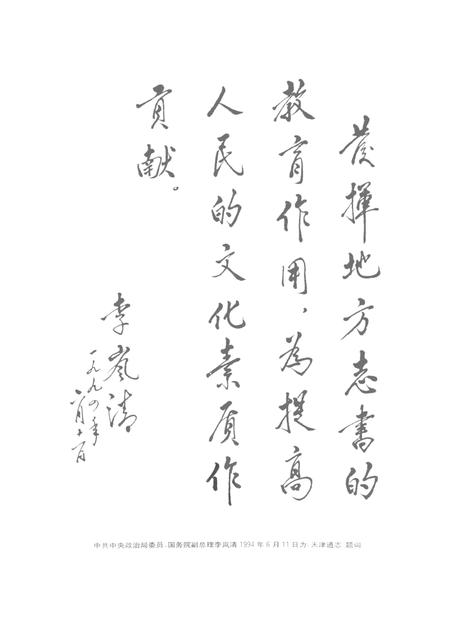 发揮地方志書的
教育作用，為提高
人民的文化素质作
貢献。
李岚清
一九九四年
六月十一日
中共中央政治局委员、国务院副总理李岚清1994年6月11日为《天津通志》题词